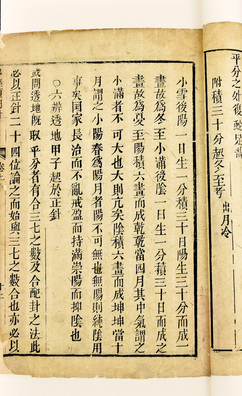 平分之始後
附積三十分起冬至考出月冷
小雪後陽一日生一分積三十日陽生三十分而成一
晝故為冬至小滿後陰一日生一分積三十分而成一
晝故為夏至陽積六畫而成乾乾當四月其中氣謂之
小滿者不可大也大則亢矣陰積六畫而成坤坤當十
月謂之小陽春為陽月者陽不可無也無陽則純陰用
事矣因家長治而不亂戒盈而持滿崇陽而抑陰也
○六辨透地甲子起於正針
或問透地旣取平分者有合三七之數及合配卦之法此
必以正針二十四位論之而始與三七之數合也亦必以